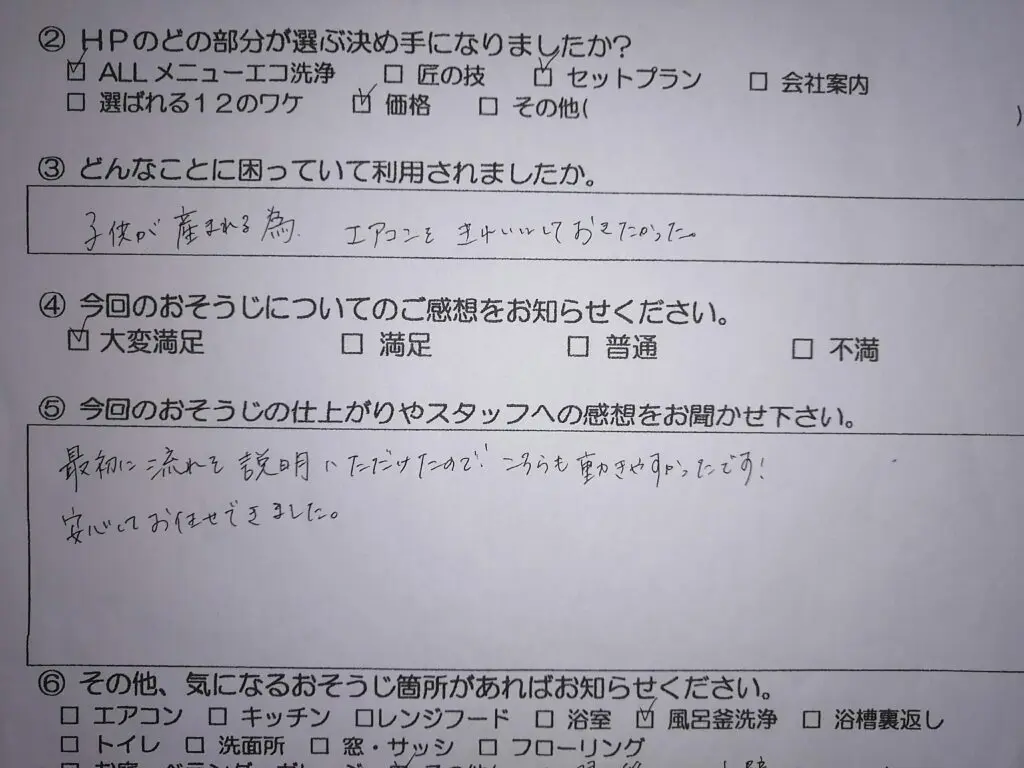 ② HPのどの部分が選ぶ決め手になりましたか?
☑ ALLメニューエコ洗浄 □ 匠の技 ☑ セットプラン □ 会社案内
□ 選ばれる12のワケ ☑ 価格 □ その他( )
③ どんなことに困っていて利用されましたか。
子供が産まれる為、エアコンをきれいにしておきたかった。
④ 今回のおそうじについてのご感想をお知らせください。
☑ 大変満足 □ 満足 □ 普通 □ 不満
⑤ 今回のおそうじの仕上がりやスタッフへの感想をお聞かせ下さい。
最初に流れを説明いただけたので、こちらも動きやすかったです!
安心してお任せできました。
⑥ その他、気になるおそうじ箇所があればお知らせください。
□ エアコン □ キッチン □レンジフード □ 浴室 ☑ 風呂釜洗浄 □ 浴槽裏返し
□ トイレ □ 洗面所 □ 窓・サッシ □ フローリング